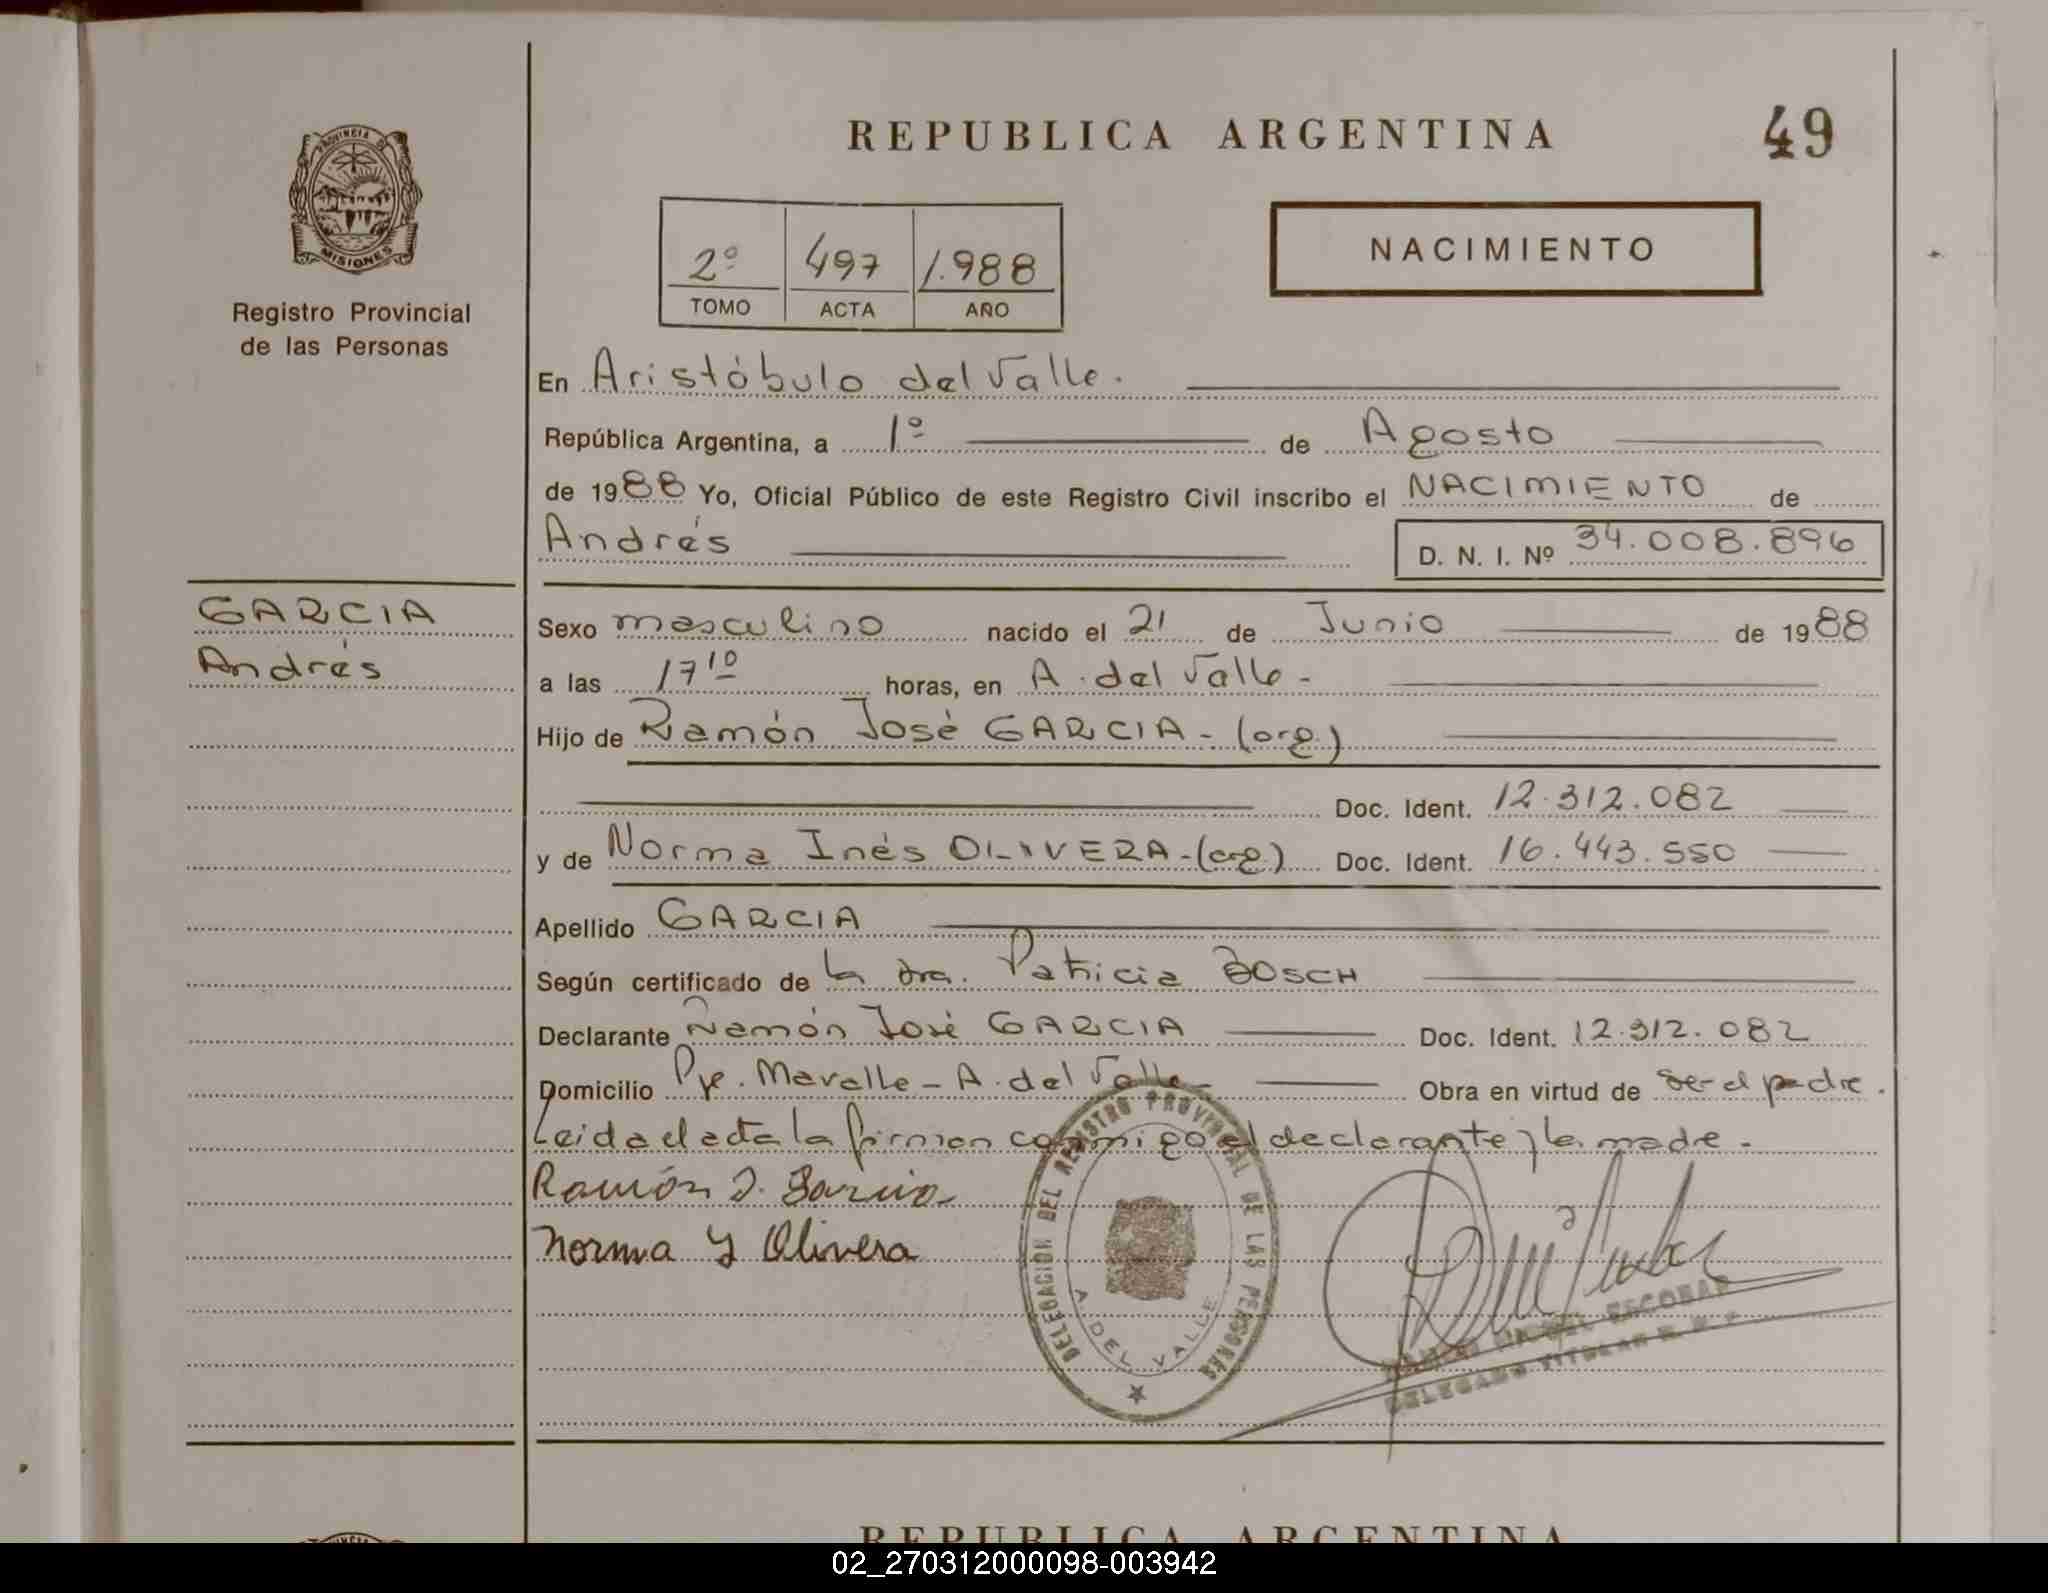 REPUBLICA ARGENTINA
49
PROVINCIA DE
MISIONES
Registro Provincial
de las Personas
2º 497 1.988
TOMO ACTA AÑO
NACIMIENTO
En Aristóbulo del Valle.
República Argentina, a 1º de Agosto
de 1988 Yo, Oficial Público de este Registro Civil inscribo el NACIMIENTO de
Andrés D. N. I. Nº 34.008.896
GARCIA
Andrés
Sexo masculino nacido el 21 de Junio de 1988
a las 17 10 horas, en A. del Valle -
Hijo de Ramón José GARCIA - (arg.)
Doc. Ident. 12.312.082
y de Norma Inés OLIVERA - (arg.) Doc. Ident. 16.443.550
Apellido GARCIA
Según certificado de la dra. Patricia BOSCH
Declarante Ramón José GARCIA Doc. Ident. 12.312.082
Domicilio A. del Valle - Obra en virtud de ser el padre.
Leida el acta la firman conmigo el declarante y la madre.
Ramón J. Garcia
Norma Y Olivera
DELEGACION DEL REGISTRO PROVINCIAL DE LAS PERSONAS
A. DEL VALLE
ESCOBAR
DELEGADO TITULAR
REPUBLICA ARGENTINA
02_270312000098-003942